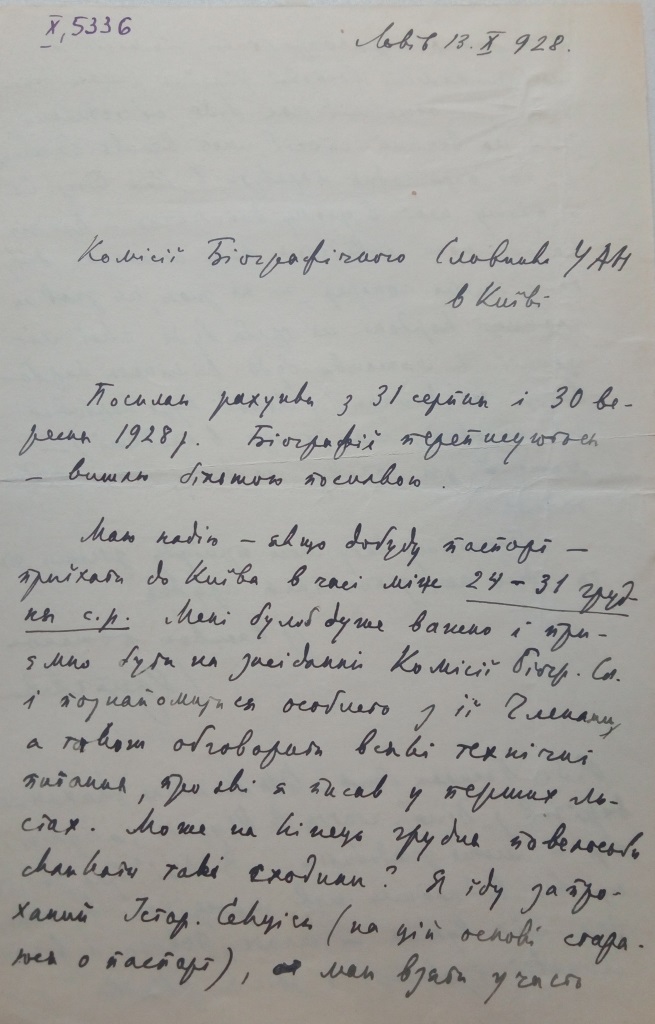 X, 5336
Львів 13. X 928.
Комісії Біографічного Словника УАН
в Київі
Посилаю рахунки з 31 серпня і 30 ве-
ресня 1928 р. Біографії переписуються
– вишлю біжучою посилкою.
Маю надію – якщо добуду паспорт –
приїхати до Київа в часі між 24 – 31 груд-
ня с.р. Мені булоб дуже важно і при-
ємно бути на засіданні Комісії Біогр. Сл.
і познайомитися особисто з її Членами,
а також обговорити всякі технічні
питання, про які я писав у перших ли-
стах. Може на кінець грудня
скликати такі сходини? Я їду запро-
ханий Істор. Секцією (на цій основі стара-
юся о паспорт), маю взяти участь